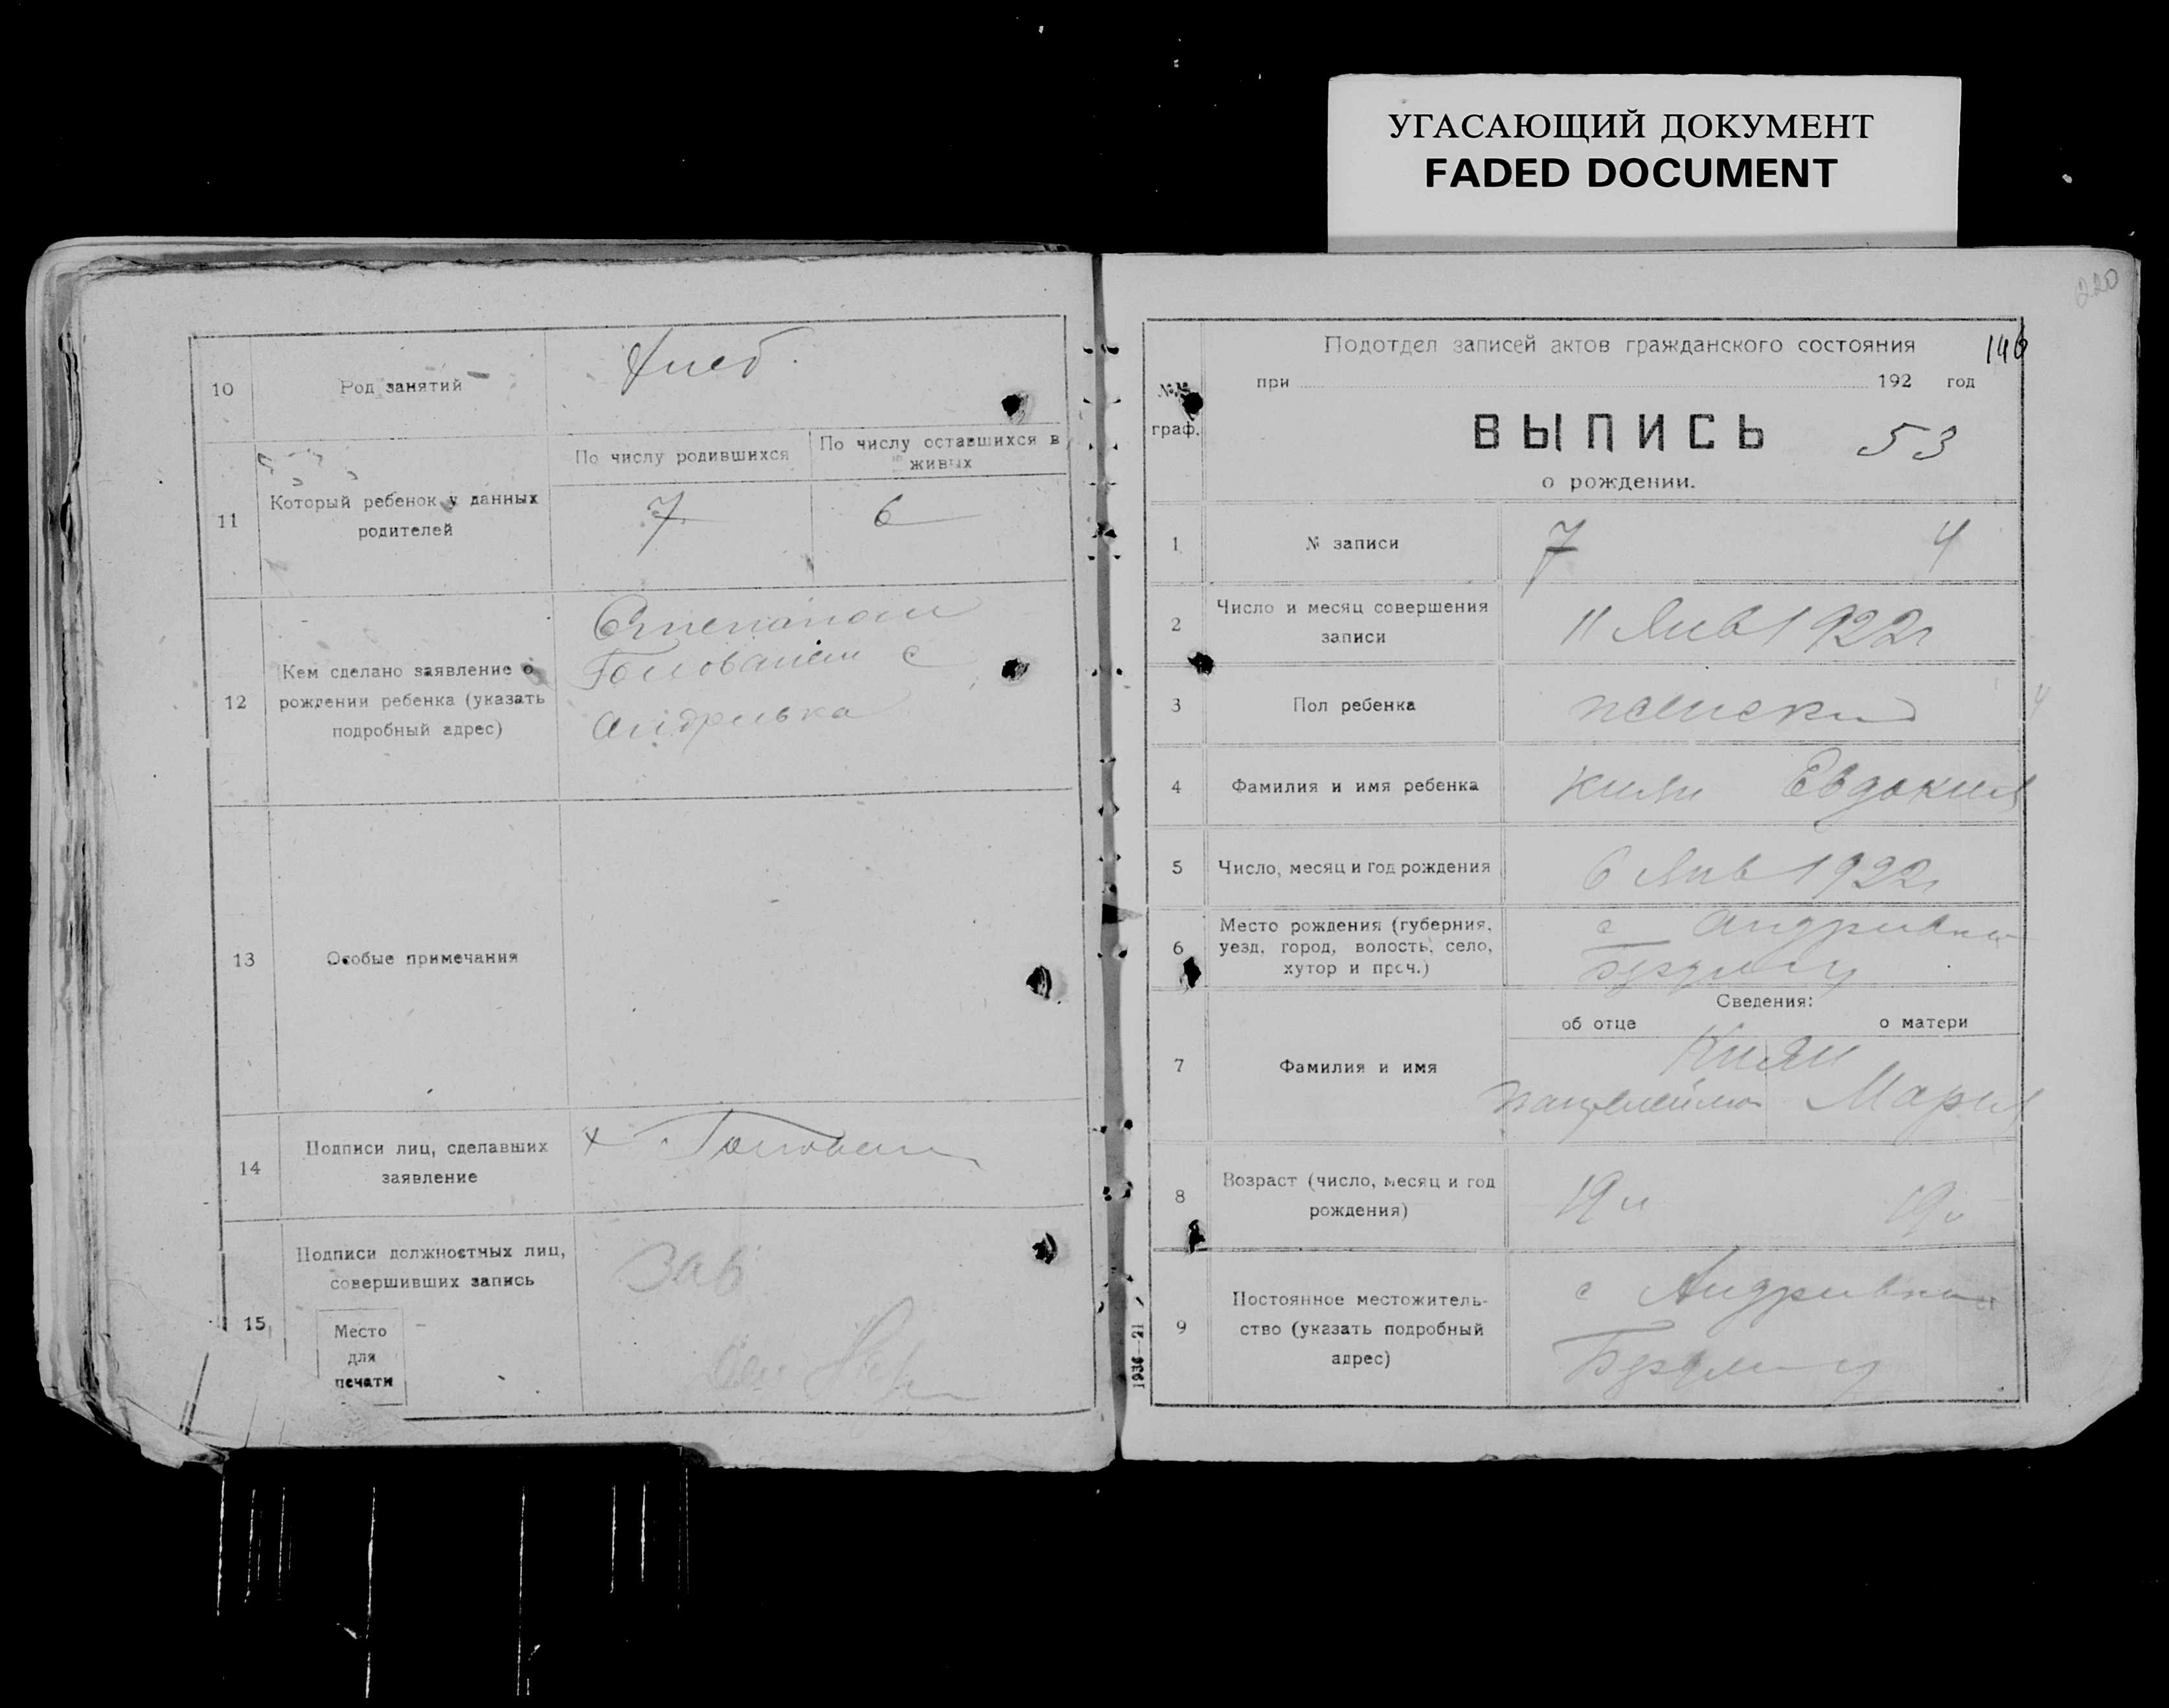 УГАСАЮЩИЙ ДОКУМЕНТ
FADED DOCUMENT
10
Род занятий
Хлеб.
11
Который ребенок у данных
родителей
По числу родившихся
По числу оставшихся в
живых
7
6
12
Кем сделано заявление о
рождении ребенка (указать
подробный адрес)
Степаном
Голованем с
Андривка
13
Особые примечания
14
Подписи лиц, сделавших
заявление
+ Головань
15
Подписи должностных лиц,
совершивших запись
Место
для
печати
Зав
220
146
№№
граф.
Подотдел записей актов гражданского состояния
при 192 год
ВЫПИСЬ 53
о рождении.
1
№ записи
7 4
2
Число и месяц совершения
записи
11 Янв 1922г
3
Пол ребенка
женский
4
Фамилия и имя ребенка
Киян Евдокия
5
Число, месяц и год рождения
6 Янв 1922г
6
Место рождения (губерния,
уезд, город, волость, село,
хутор и проч.)
с Андривка
Бердян у
Сведения:
об отце о матери
7
Фамилия и имя
Киян
Пантелеймон Мария
8
Возраст (число, месяц и год
рождения)
9
Постоянное местожитель-
ство (указать подробный
адрес)
с Андривка
Бердян у
1936—21